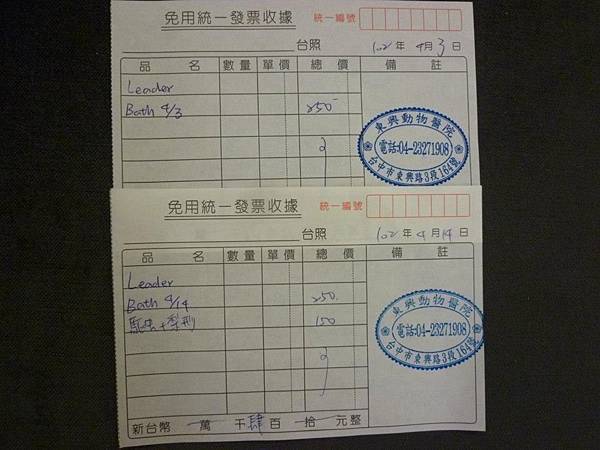 免用統一發票收據 統一編號
台照 102年 4月3日
品 名 數量 單價 總 價 備 註
Leader
Bath 4/3 250
東興動物醫院
電話:04-23271908
台中市東興路3段164號
免用統一發票收據 統一編號
台照 102年 4月14日
品 名 數量 單價 總 價 備 註
Leader
Bath 4/14 250.
150
東興動物醫院
電話:04-23271908
台中市東興路3段164號
新台幣 萬 千肆百 拾 元整